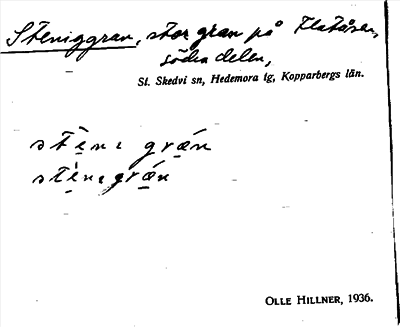 Steniggran, stor gran på Klatåsen,
södra delen,
St. Skedvi sn, Hedemora tg, Kopparbergs län.
stè̩nı grǽ̩n
stè̩nıgrǽ̩n
OLLE HILLNER, 1936.